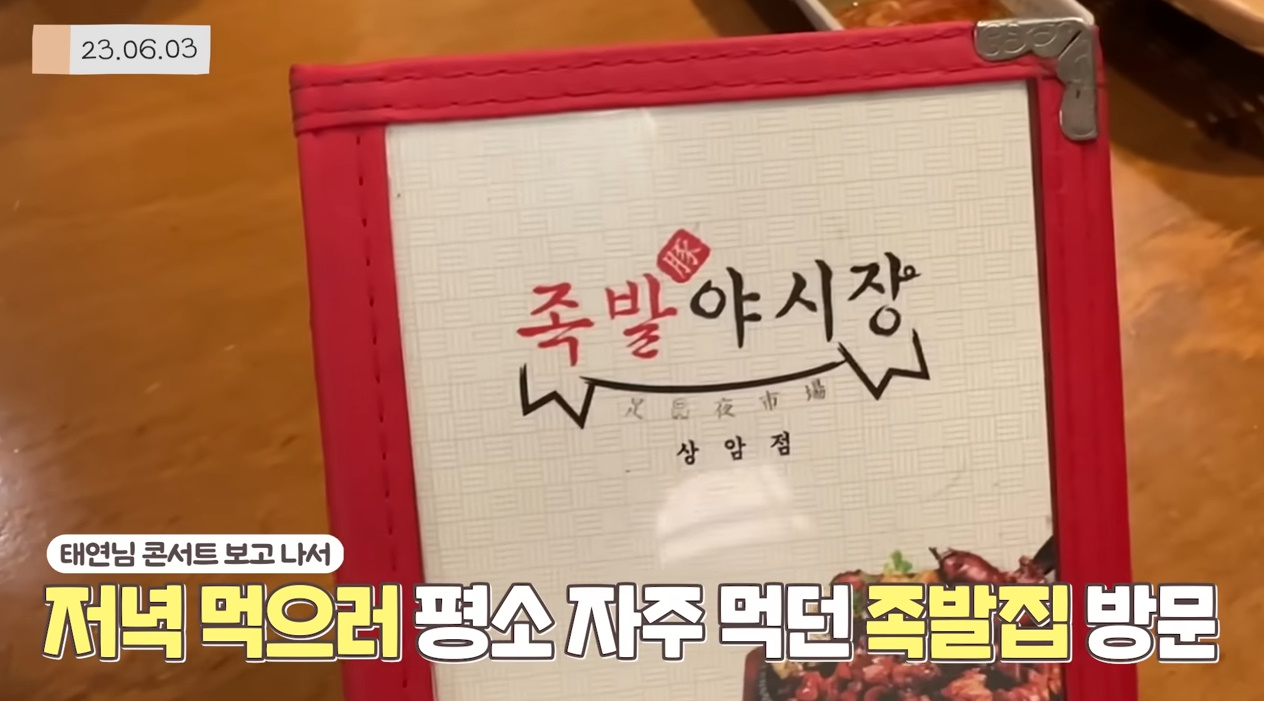 23.06.03
豚
족발야시장
夜市場
상암점
태연님 콘서트 보고 나서
저녁 먹으러 평소 자주 먹던 족발집 방문